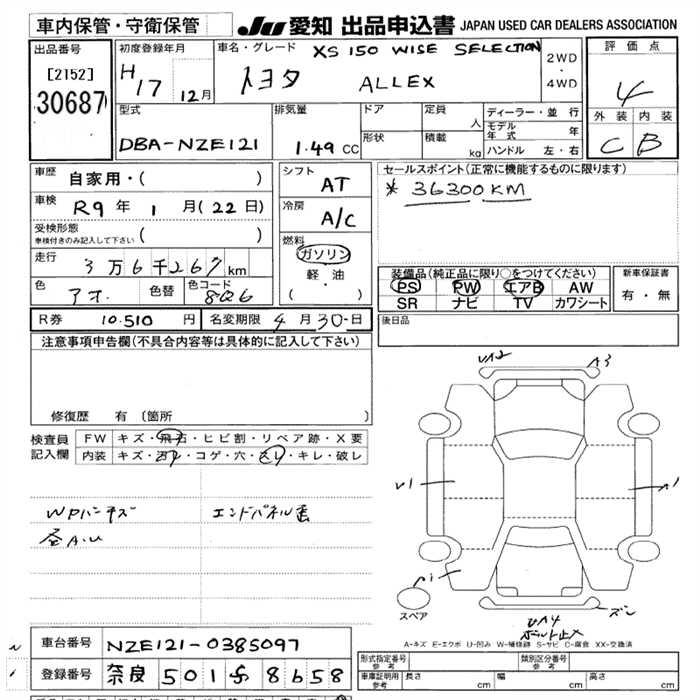 車内保管・守衛保管
JU 愛知 出品申込書 JAPAN USED CAR DEALERS ASSOCIATION
出品番号
[2152]
30687
初度登録年月
H17 12月
車名・グレード XS 150 WISE SELECTION
トヨタ ALLEX
2WD
・
4WD
評価点
4
外装 内装
C B
型式
DBA-NZE121
排気量
1.49 CC
ドア
形状
定員 人
積載 kg
ディーラー・並行
モデル年式 年
ハンドル 左・右
車歴 自家用・( )
車検 R9年 1月(22日)
受検形態
車検付きのみ記入して下さい ( )
走行 3万6千267km
色 アオ 色替 色コード 8Q6
シフト AT
冷房 A/C
燃料
ガソリン
軽・油
( ・ )
セールスポイント(正常に機能するものに限ります)
* 36300KM
装備品(純正品に限り○をつけてください)
PS PW エアB AW
SR ナビ TV カワシート
新車保証書
有・無
R券 10.510 円 名変期限 4月30日
後日品
注意事項申告欄(不具合内容等は具体的に記入して下さい)
修復歴 有〔箇所 〕
検査員記入欄
FW キズ・飛石・ヒビ割・リペア跡・X要
内装 キズ・ヨゴレ・コゲ・穴・スレ・キレ・破レ
WPハンキズ
エンドパネル歪
全A.U
U12 A3
U1 A1
スペア
U14
A-キズ E-エクボ U-凹み W-補修跡 S-サビ C-腐食 XX-交換済
車台番号 NZE121-0385097
登録番号 奈良 501 8658
形式指定番号
参考
類別区分番号
参考
車庫証明用
参考
長さ cm 幅 cm 高さ cm